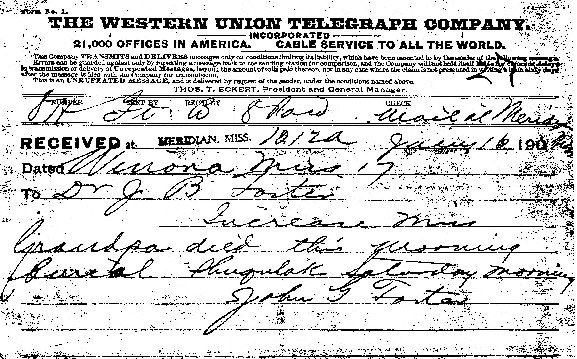 Form No. 1.
THE WESTERN UNION TELEGRAPH COMPANY.
INCORPORATED
21,000 OFFICES IN AMERICA. CABLE SERVICE TO ALL THE WORLD.
This Company TRANSMITS and DELIVERS messages only on conditions limiting its liability, which have been assented to by the sender of the following message.
Errors can be guarded against only by repeating a message back to the sending station for comparison, and the Company will not hold itself liable for errors or delays
in transmission or delivery of Unrepeated Messages, beyond the amount of tolls paid thereon, nor in any case where the claim is not presented in writing within sixty days
after the message is filed with the Company for transmission.
This is an UNREPEATED MESSAGE, and is delivered by request of the sender, under the conditions named above.
THOS. T. ECKERT, President and General Manager.
NUMBER SENT BY CHECK
Paid Mail at
RECEIVED at MERIDIAN, MISS. 1212a 190
Dated Winona Miss 17
To Dr J B Foster
Increase Miss
Grandpa died this morning
Burial Saturday morning
John G Foster